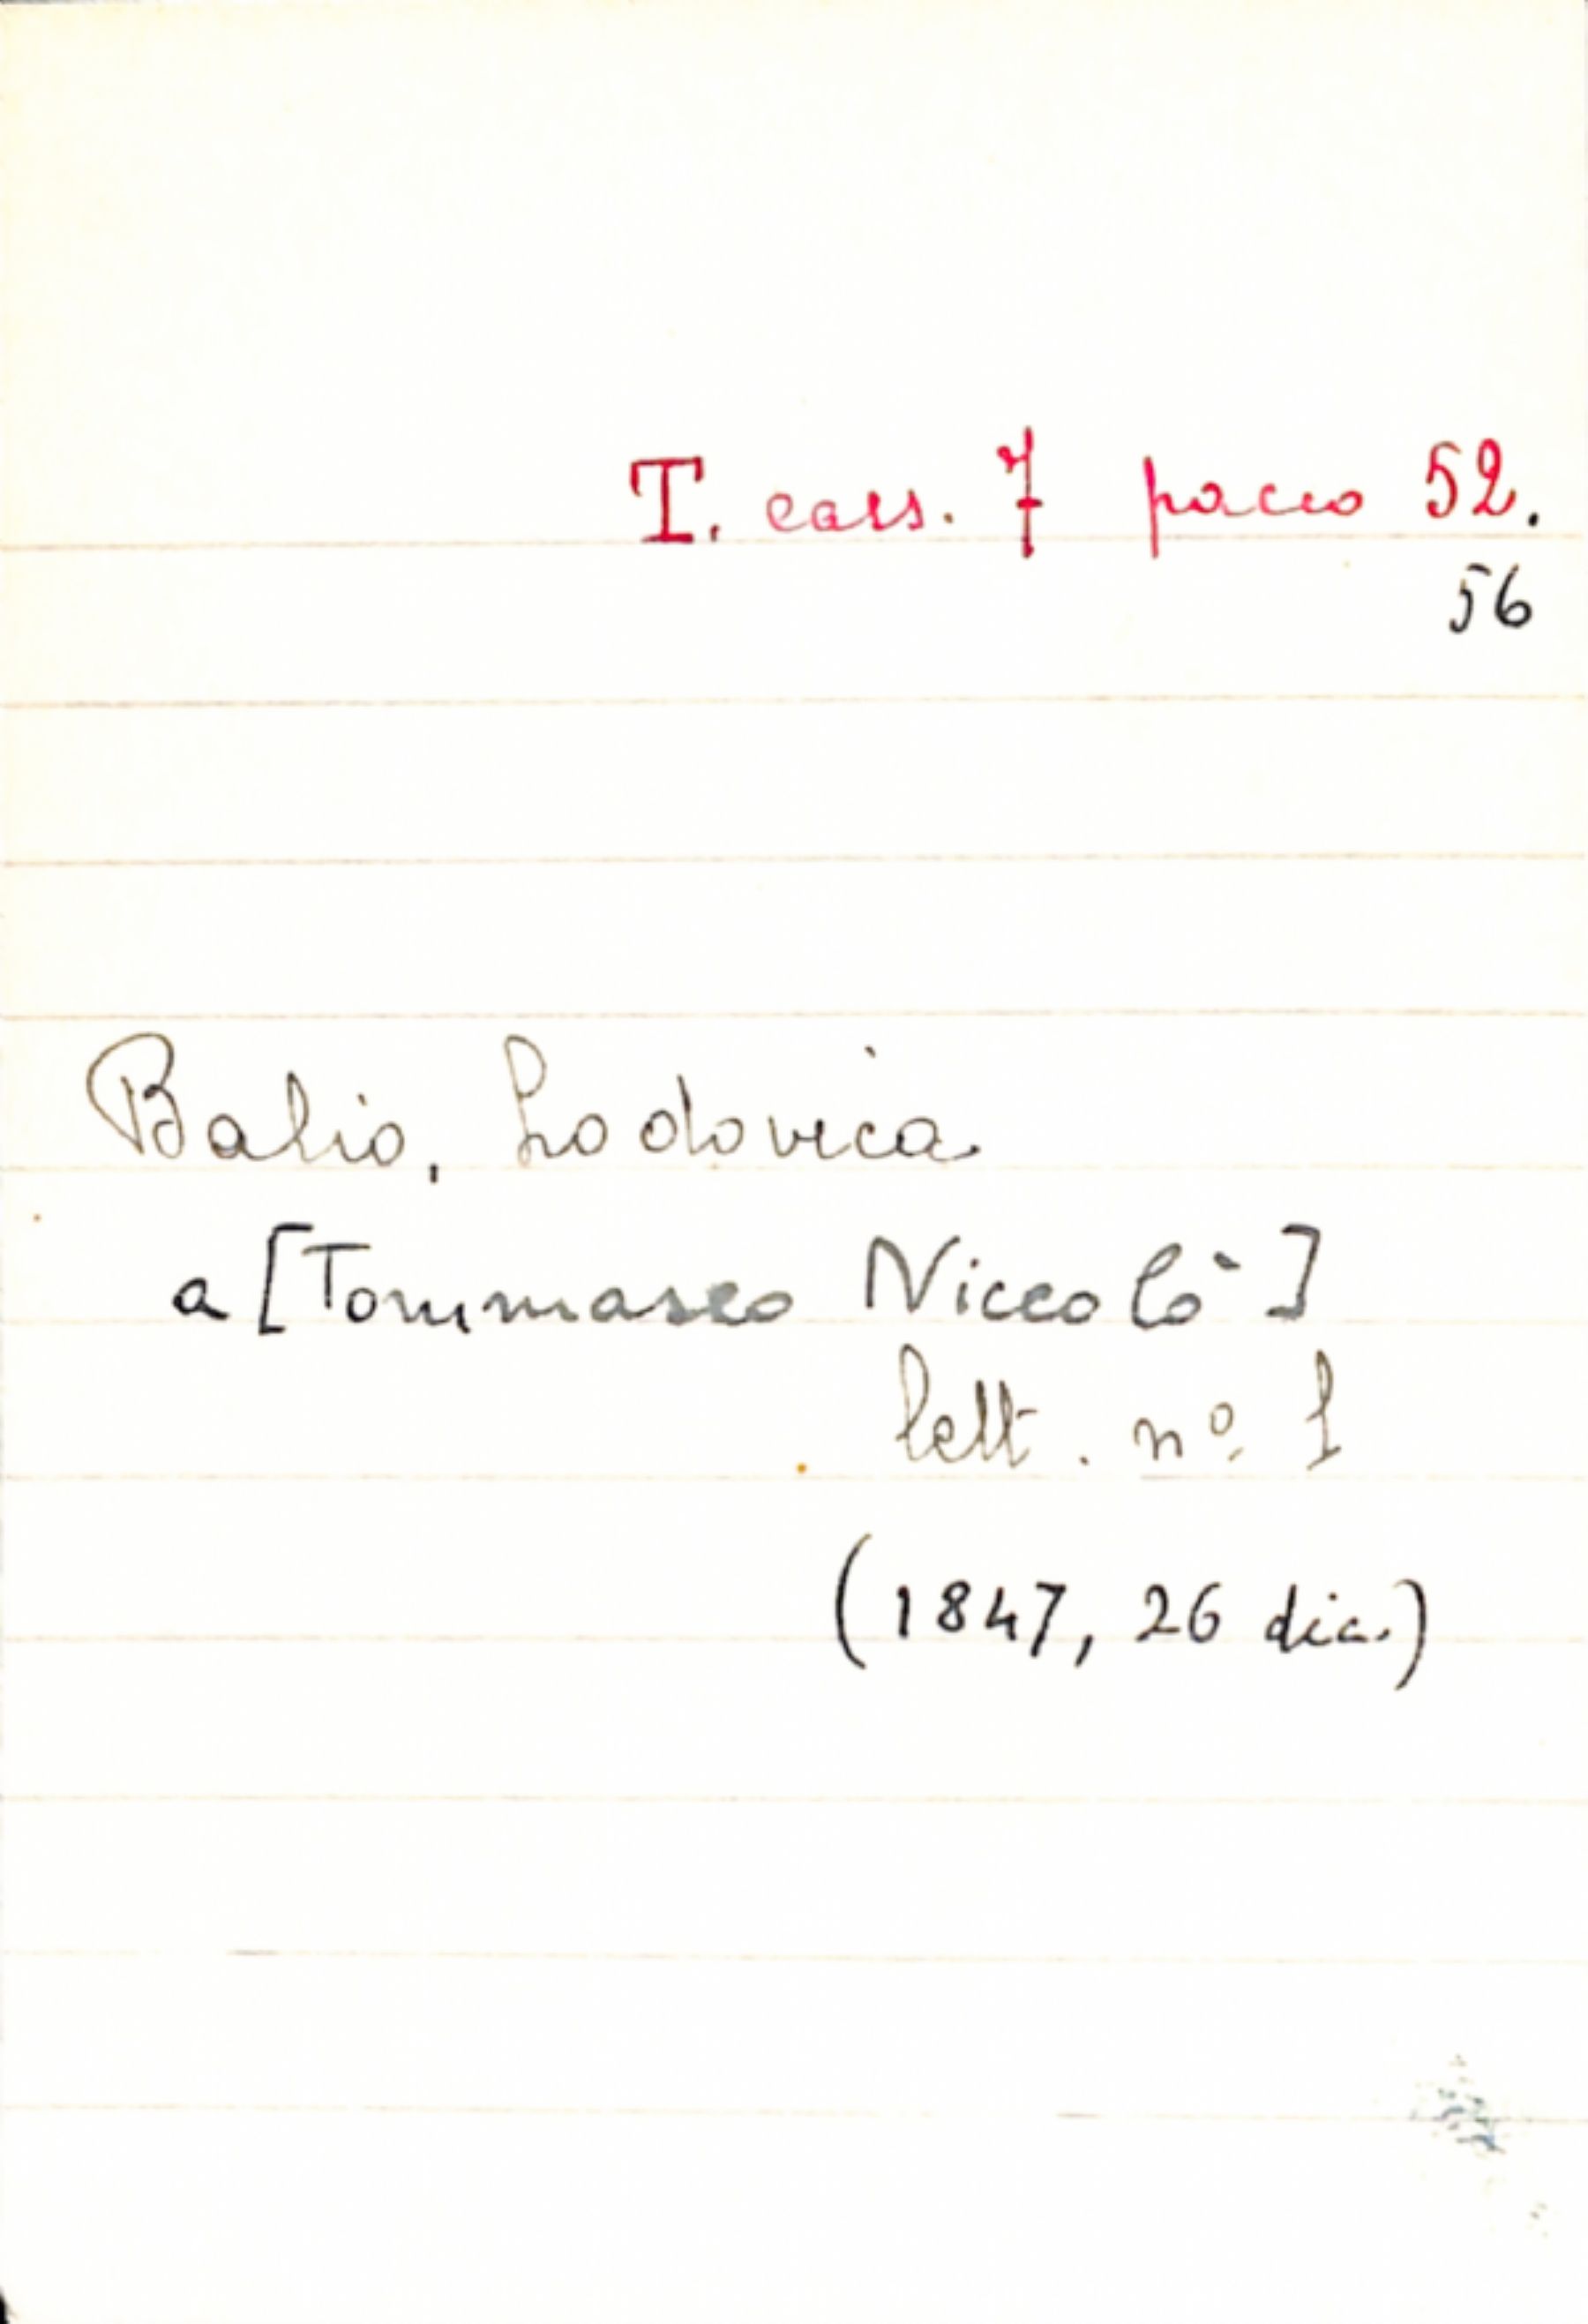 T. cass. 7 pacco 52.
56
Balio, Lodovica
a [Tommaseo Niccolò]
lett. nº 1
(1847, 26 dic.)